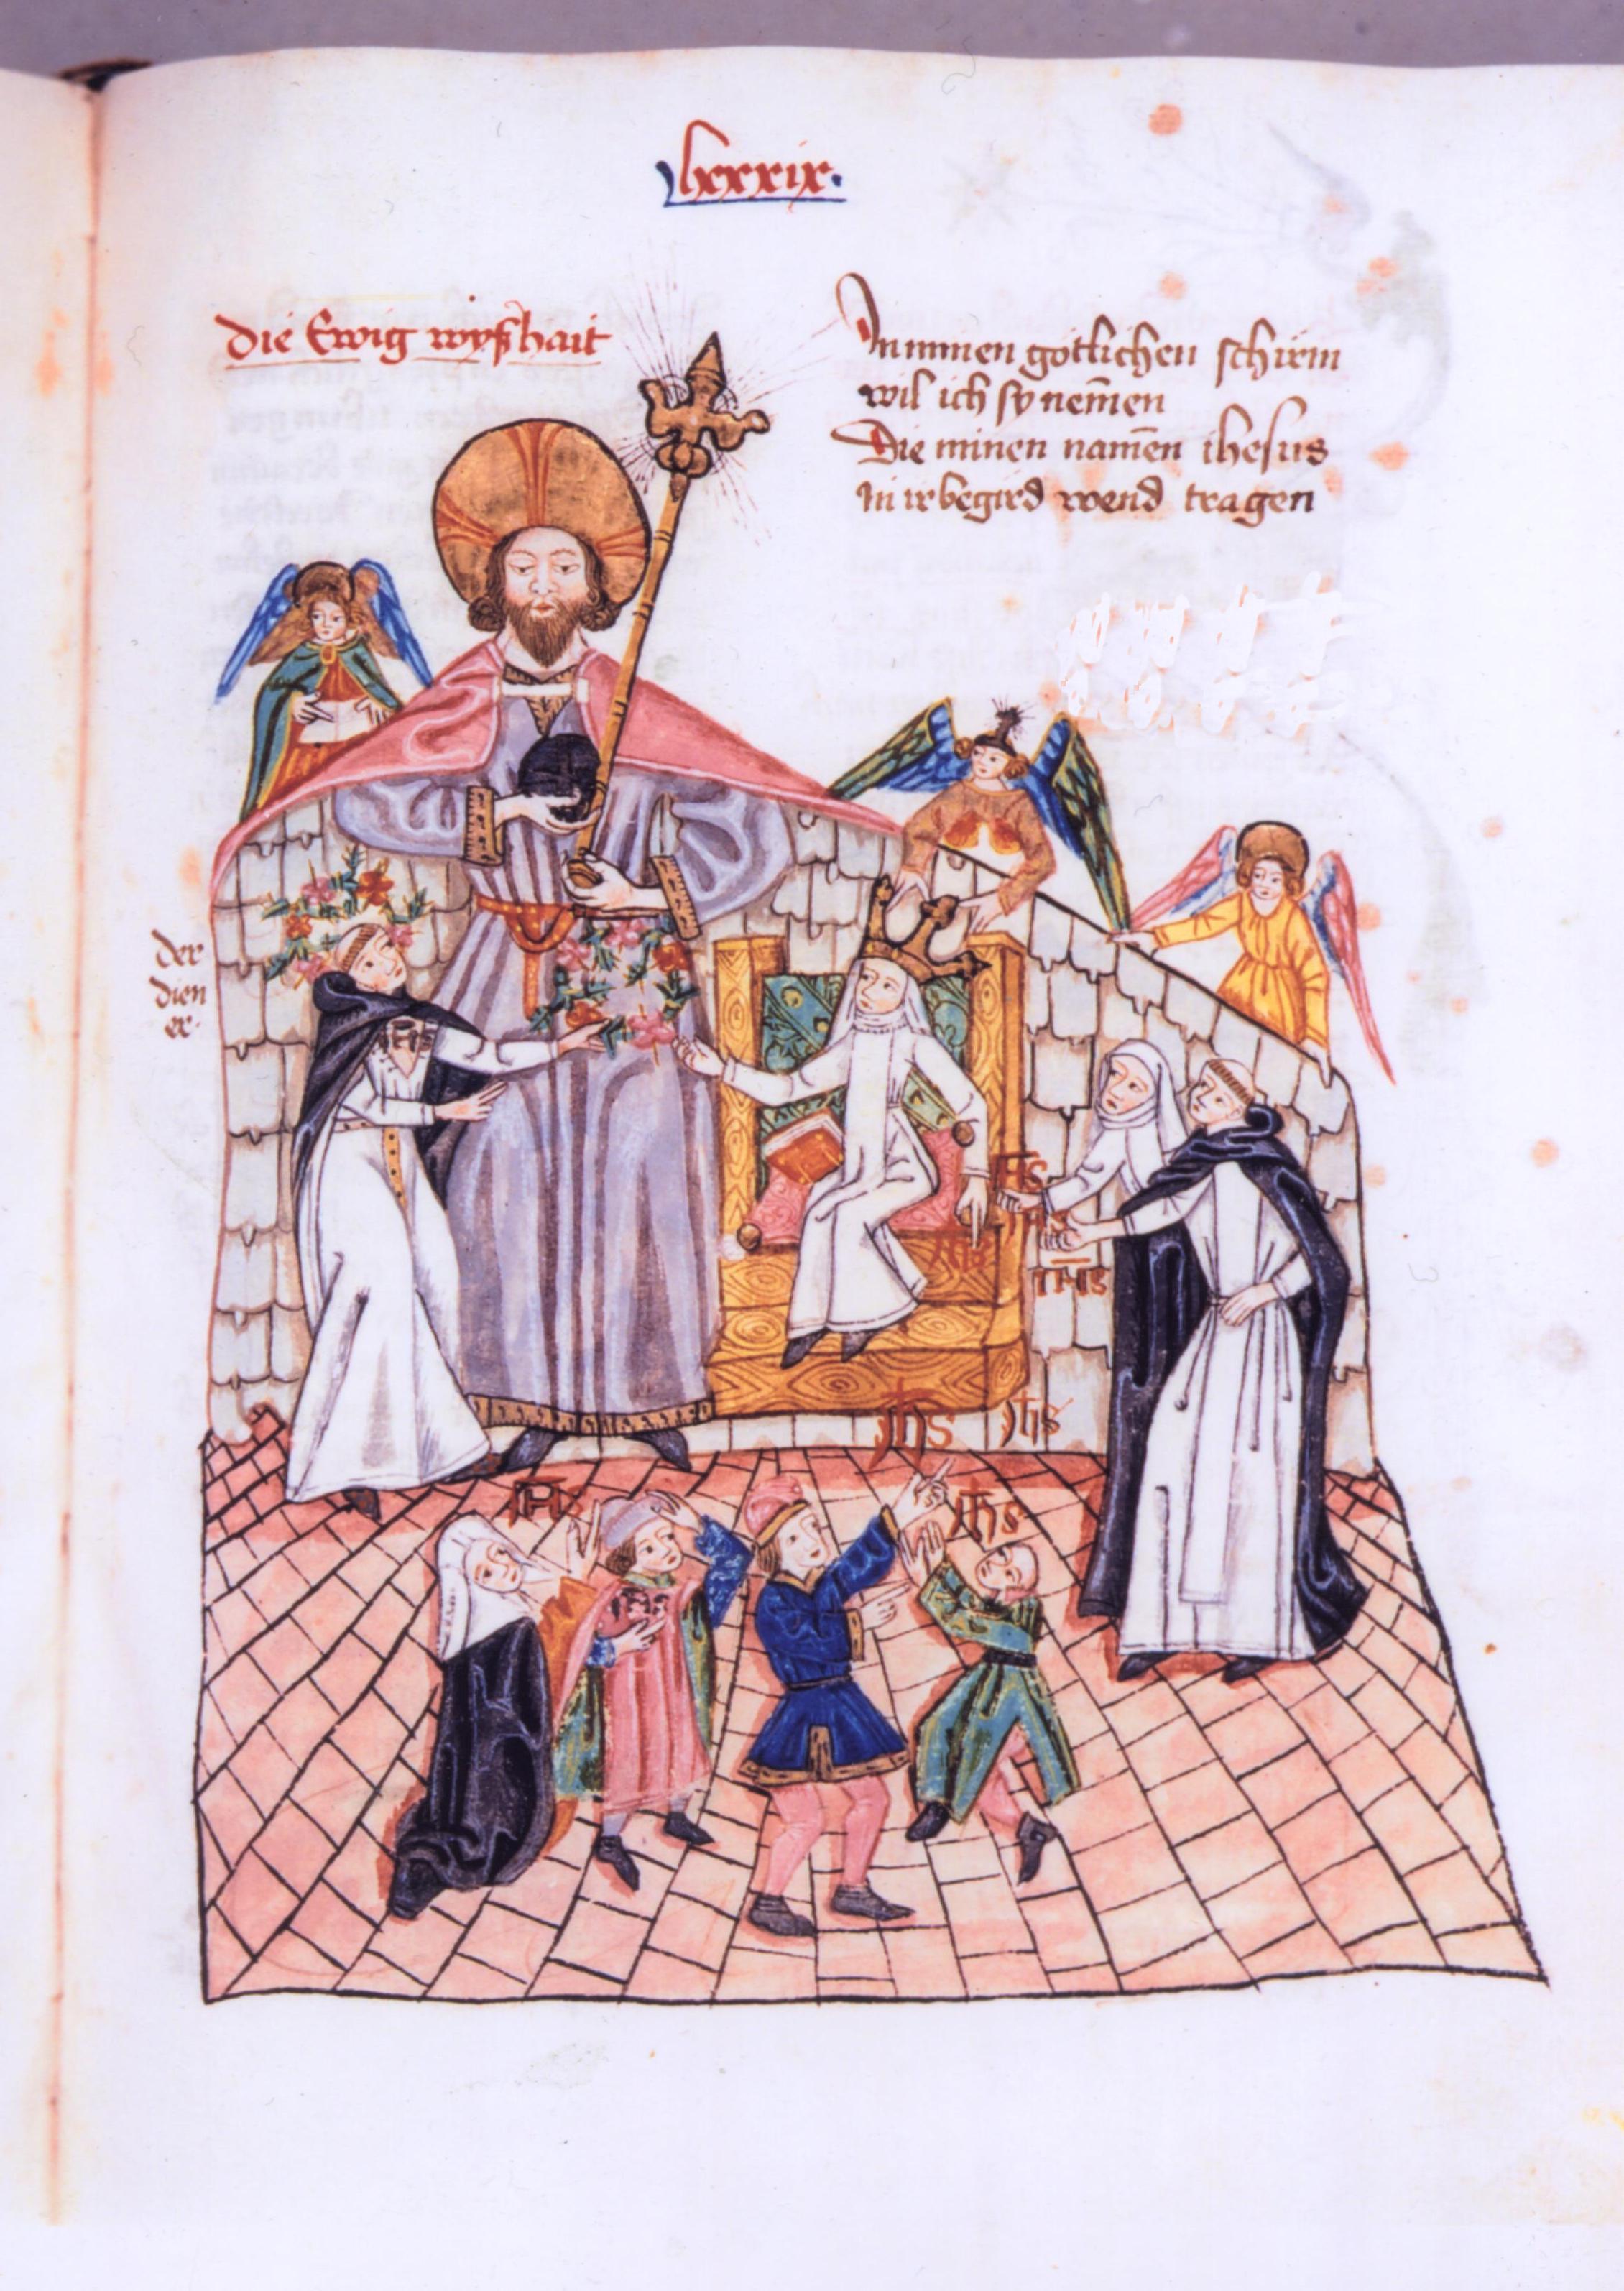 lxxxix.
Die Ewig wyßhait
In minen götlichen schirm
wil ich sy nem̄en
Die minen nam̄en ihesus
In ir begird wend tragen
der
dien
er.
IHS
IHS
IHS
IHS
IHS
IHS
IHS
IHS